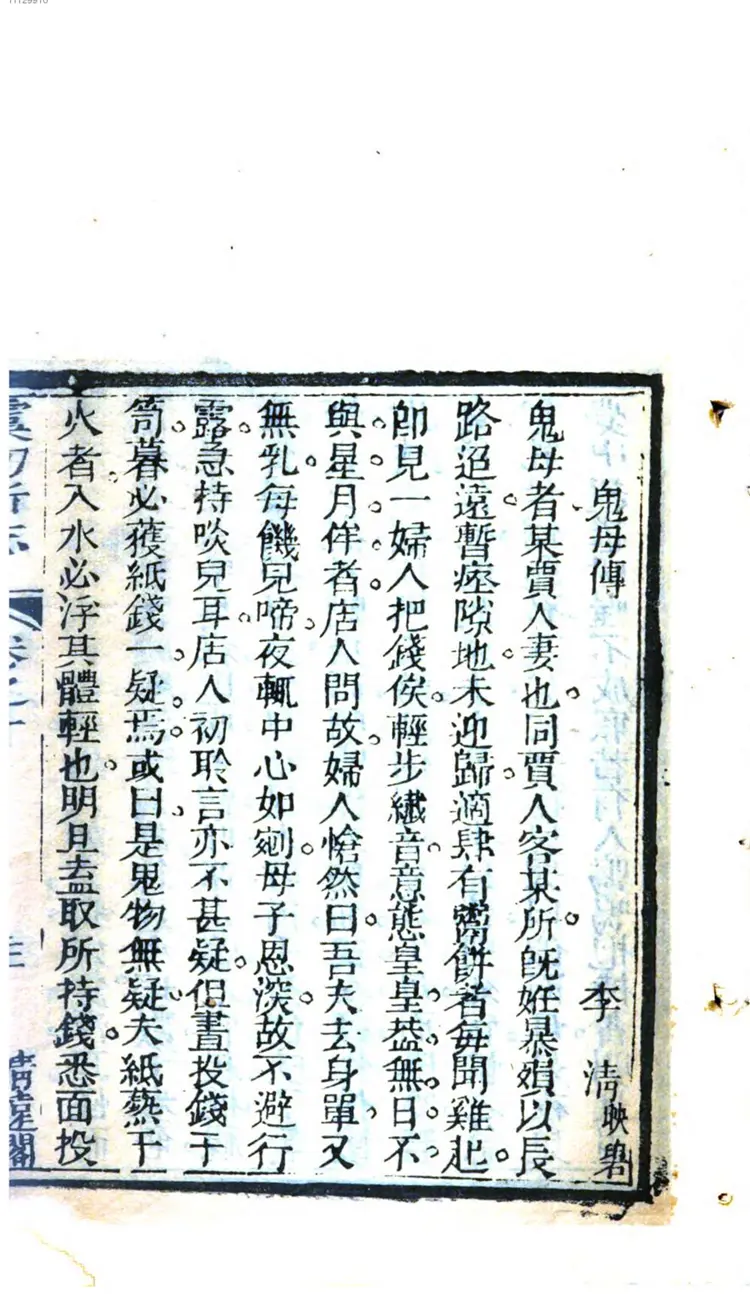 11129910
鬼母傳
李 清 映碧
鬼母者某賈人妻也同賈人客某所旣姙暴殞以長
路迢遠暫瘞隙地未迎歸適肆有鬻餅者每聞雞起
卽見一婦人把錢俟輕步纖音意態皇皇葢無日不
與星月侔者店人問故婦人愴然曰吾夫去身單又
無乳每饑兒啼夜輒中心如剜母子恩深故不避行
露急持啖兒耳店人初聆言亦不甚疑但晝投錢于
笥暮必獲紙錢一疑焉或曰是鬼物無疑夫紙爇于
火者入水必浮其體輕也明旦盍取所持錢悉面投
虞初新志 卷之十 三 淸遠閣